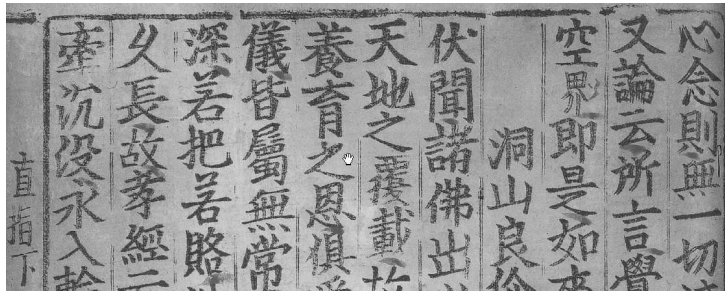 心念則無一切
又論云所言覺
空界即是如來
洞山良价
伏聞諸佛出
天地之覆載故
養育之恩俱
儀皆屬無常
深若把若賂
久長故孝經云
牽沉没永入輪
直指下